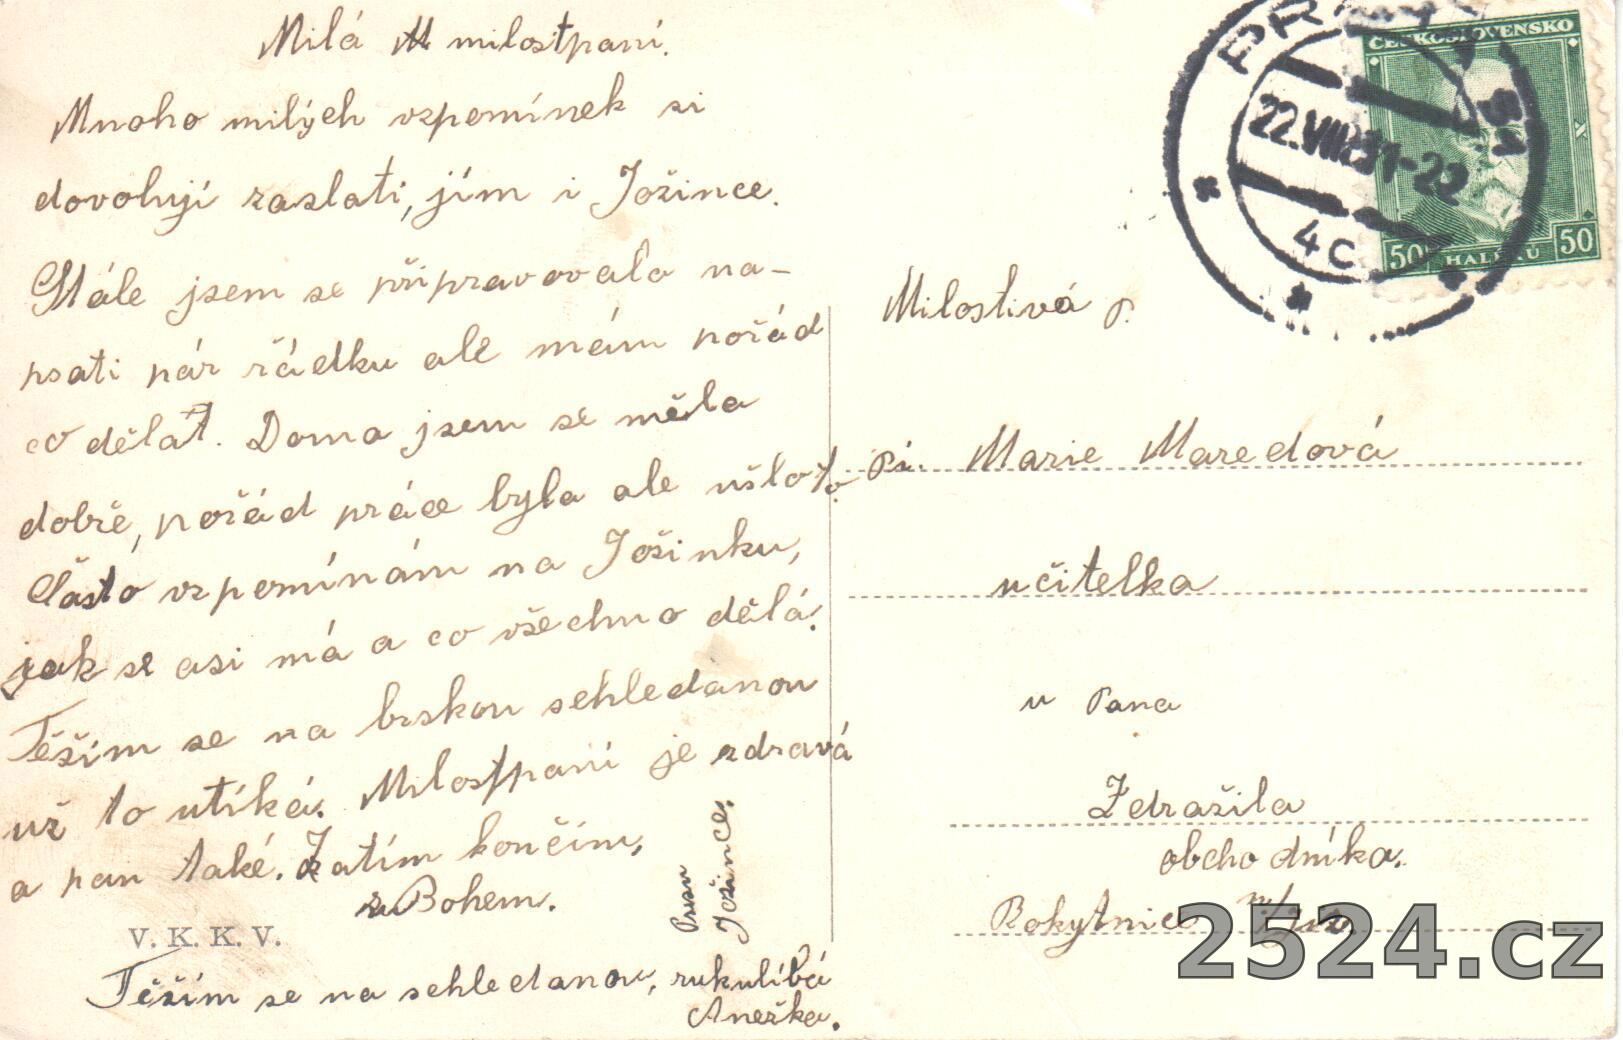 Milá M milostpaní.
Mnoho milých vzpomínek si
dovoluji zaslati, jím i Jožince.
Stále jsem se připravovala na-
psati pár řádku ale mám pořád
co dělat. Doma jsem se měla
dobře, pořád práce byla ale ušlo to.
Často vzpomínám na Jožinku,
jak se asi má a co všechno dělá.
Těším se na brskou sehledanou
už to utíká. Milostpaní je zdravá
a pan také. Zatím končím,
z Bohem.
Pusu
Jožince.
V. K. K. V.
Těším se na sehledanou, rukulíbá
Anežka.
ČESKOSLOVENSKO
50 HALÉŘŮ 50
22.VIII.31-22
4C
Milostivá p.
Pí. Marie Maredová
učitelka
u Pana
Zdražila
obchodníka.
Rokytnice n/Jiz.
2524.cz